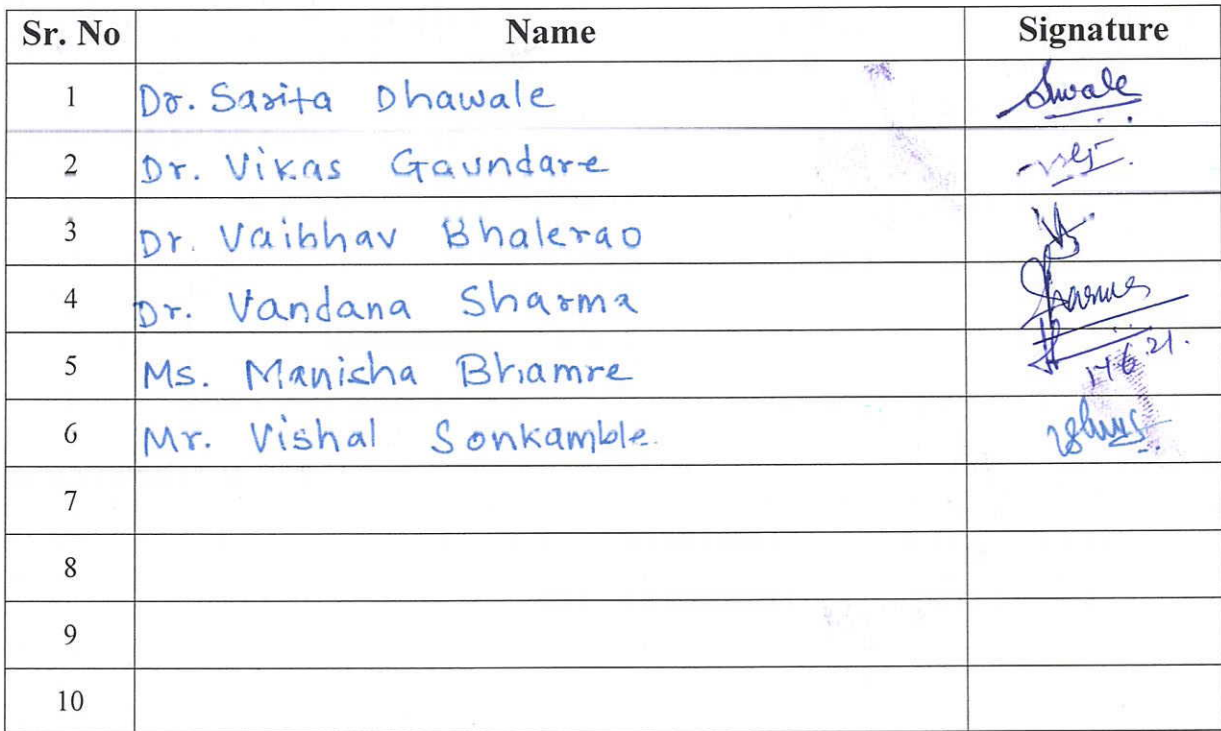 Sr. No Name Signature
1 Dr. Sarita Dhawale
2 Dr. Vikas Gaundare
3 Dr. Vaibhav Bhalerao
4 Dr. Vandana Sharma
5 Ms. Manisha Bhamre 17.6.21.
6 Mr. Vishal Sonkamble.
7
8
9
10